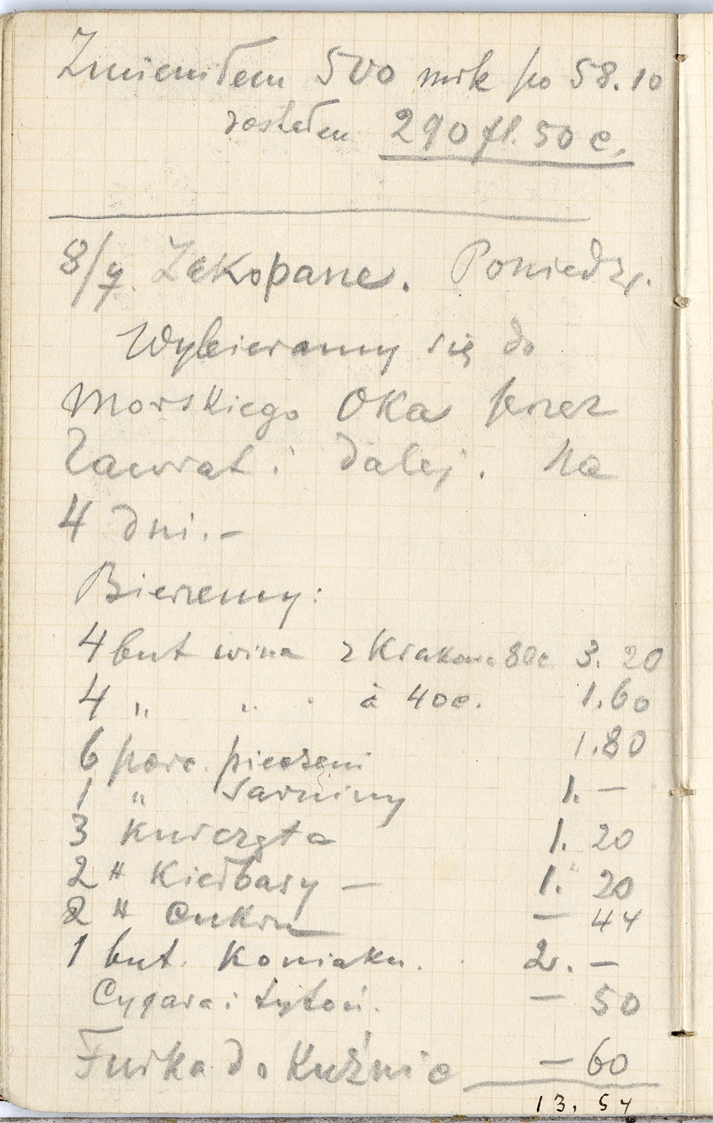 Zmieniłem 500 mrk po 58.10
dostałem 290 fl. 50 c.
8/9. Zakopane. Poniedz.
Wybieramy się do
Morskiego Oka przez
Zawrat i dalej. Na
4 dni.–
Bierzemy:
4 but wina z Krakowa 80c 3. 20
4 „ „ à 40c. 1.60
6 porc. pieczeni 1.80
1 „ Sarniny 1. –
3 Kurczęta 1. 20
2 " Kiełbasy – 1. 20
2 " Cukru – 44
1 but. Koniaku. 2. –
Cygara i tytoń. – 50
Furka do Kuźnic – 60
13. 54